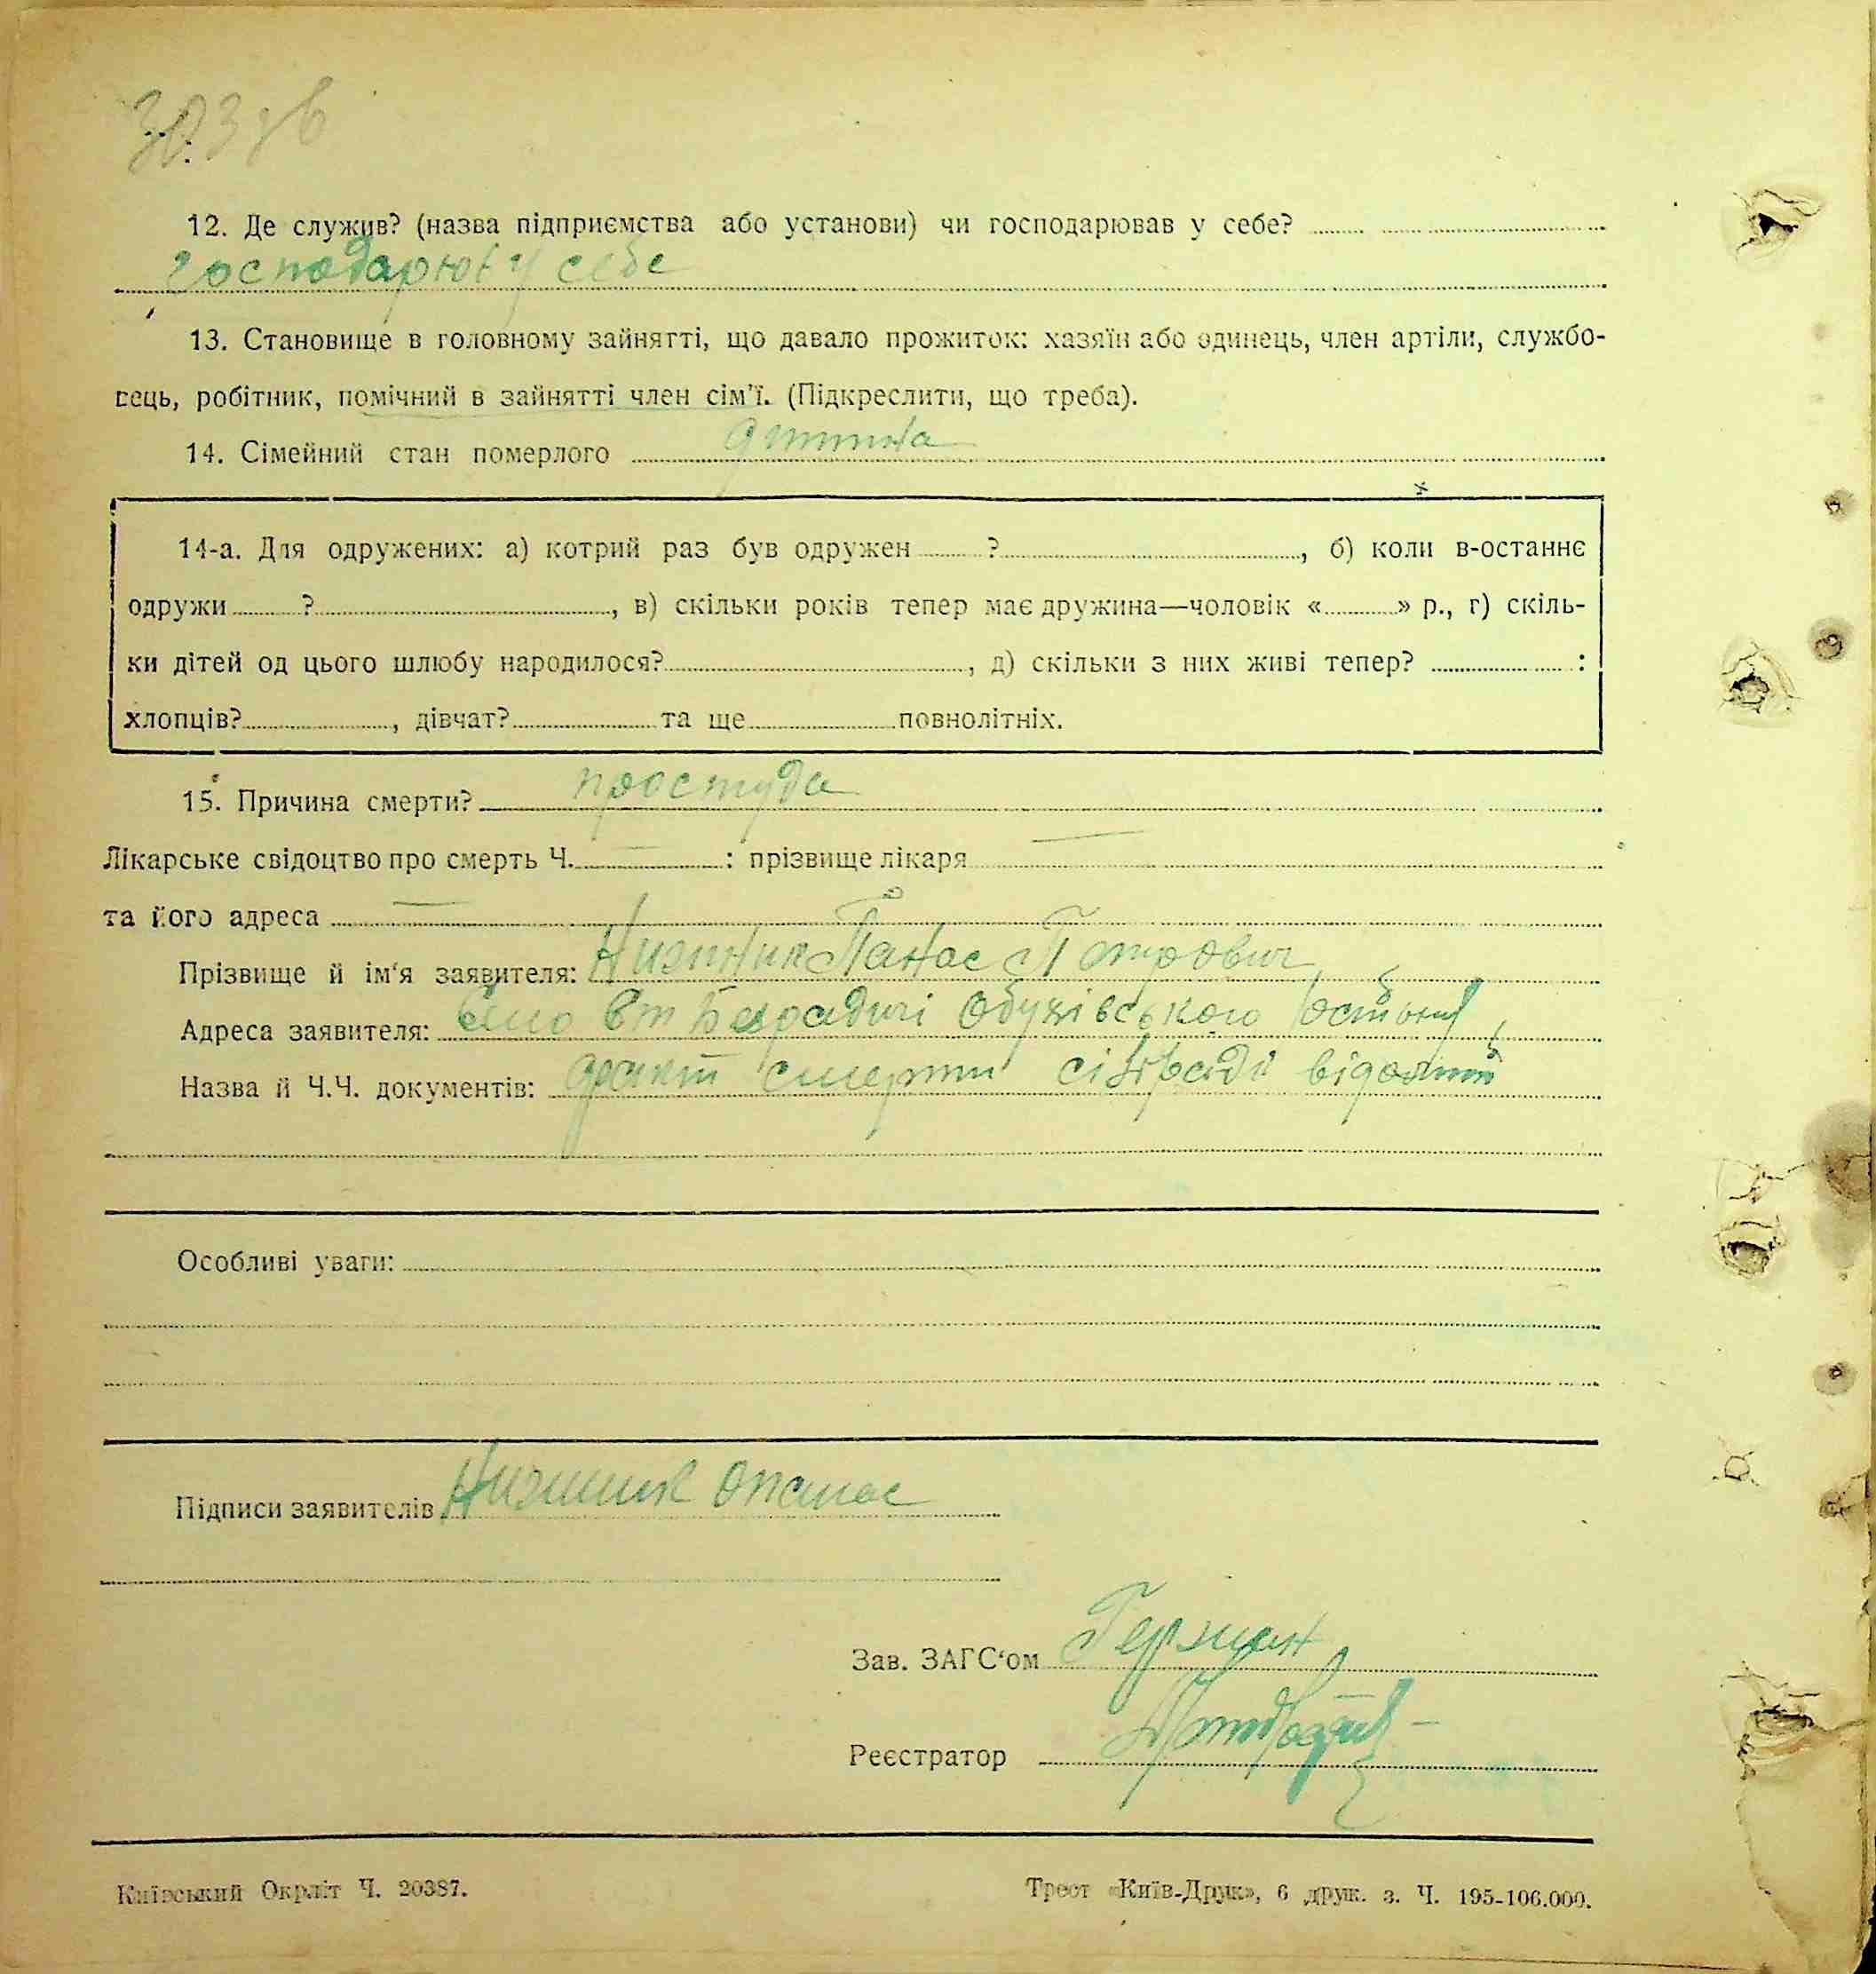 303 зв
12. Де служив? (назва підприємства або установи) чи господарював у себе?
господарює у себе
13. Становище в головному зайнятті, що давало прожиток: хазяїн або одинець, член артіли, службо-
вець, робітник, помічний в зайнятті член сім'ї. (Підкреслити, що треба).
14. Сімейний стан померлого дитина
14-а. Для одружених: а) котрий раз був одружен ?, б) коли в-останнє
одружи ?, в) скільки років тепер має дружина—чоловік «» р., г) скіль-
ки дітей од цього шлюбу народилося?, д) скільки з них живі тепер? :
хлопців?, дівчат? та ще повнолітніх.
15. Причина смерти? простуда
Лікарське свідоцтво про смерть Ч. : прізвище лікаря
та його адреса
Прізвище й ім'я заявителя: Нижник Панас Петрович
Адреса заявителя: Село Безрадичі Обухівського
Назва й Ч.Ч. документів: смерти сільради
Особливі уваги:
Підписи заявителів Нижник Опанас
Зав. ЗАГС'ом Герман
Реєстратор
Київський Окрліт Ч. 20387.
Трест «Київ-Друк», 6 друк. з. Ч. 195-106.000.